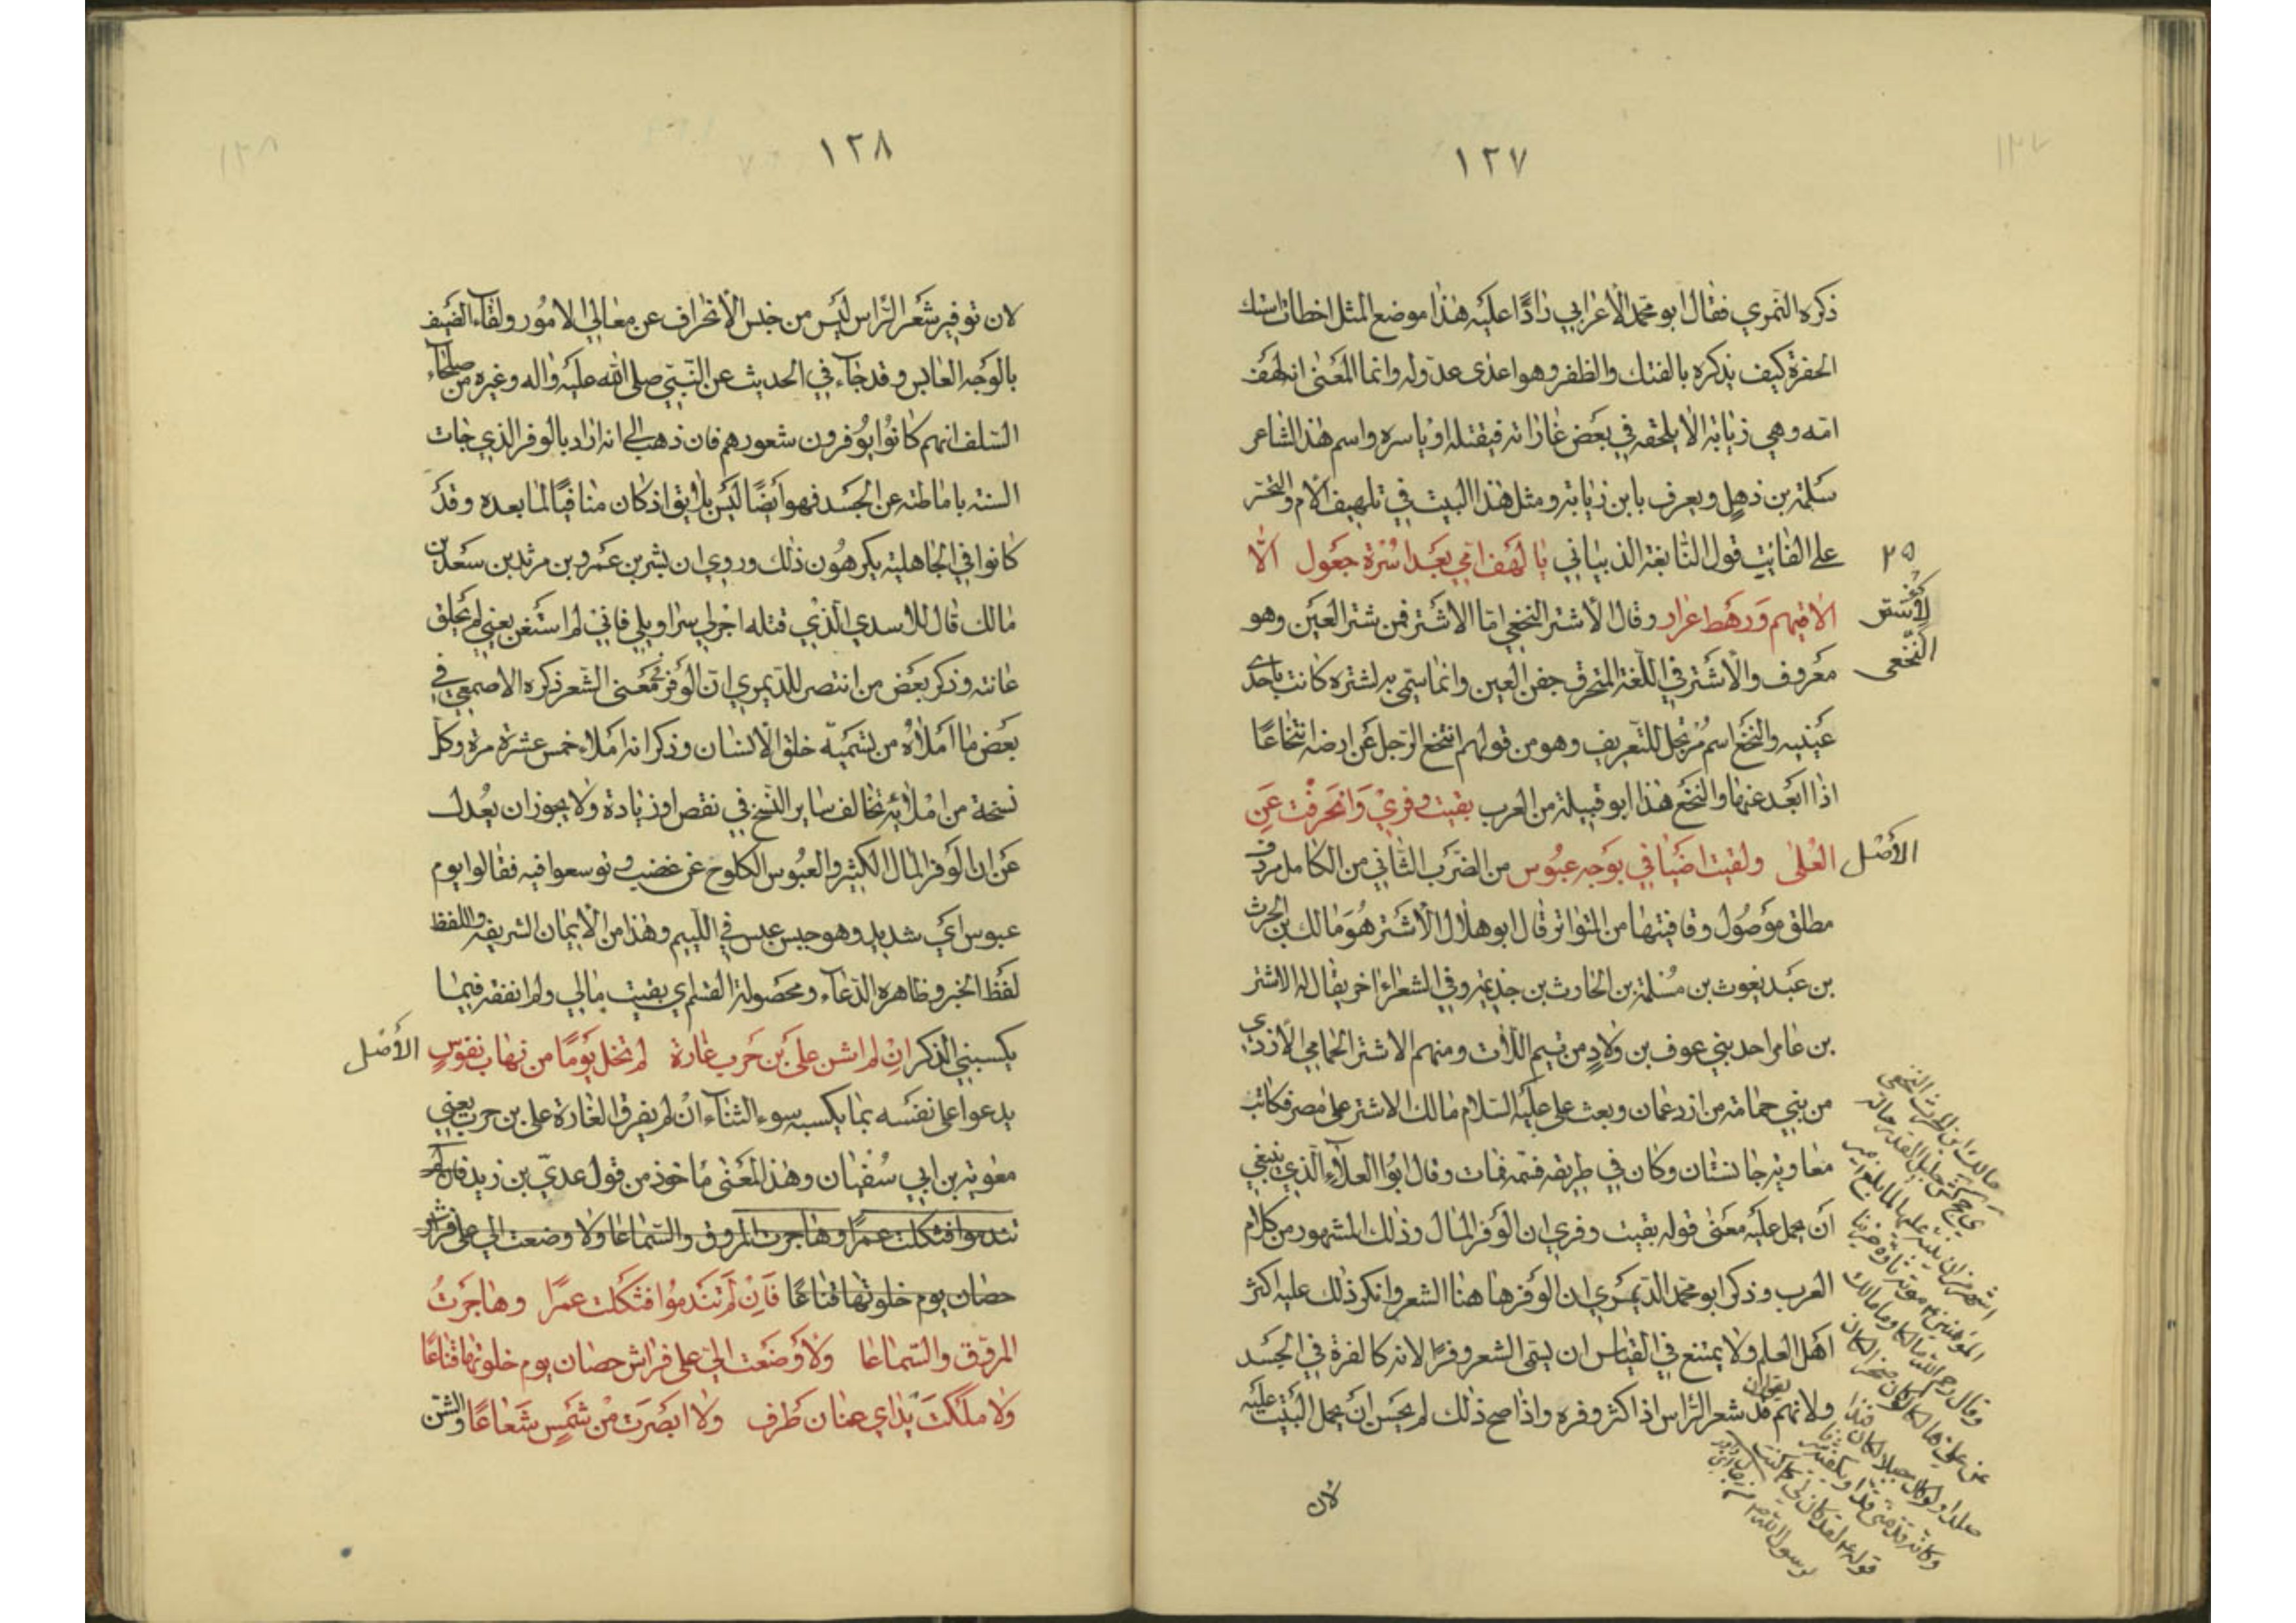 ١٢٧
ذكره النمري فقال ابو محمد الأعرابي رادًا عليه هذا موضع المثل اخطات استك
الحفرة كيف يذكره بالفتك والظفر وهو اعدى عدو له وانما المعنى انه لهف
امه وهي زيابة الا يلحقه في بعض غاراته فيقتله او ياسره واسم هذا الشاعر
سلمة بن ذهل ويعرف بابن زيابة ومثل هذا البيت في تلهيف الأم والتحسّر
على الفائِت قول النابغة الذبياني يا لهف امي بعد اسرة جعول الّا
٢٥
الاقيهم ورهط عرار وقال الأشتر النخعي امّا الاشتر فمن شتر العين وهو
النخعي
معروف والأشتر في اللغة المتخرق جفن العين وانما سمّي به لشتره كانت باحدى
عينيه والنخع اسم مرتجل للتعريف وهو من قولهم انتخع الرجل عن ارضه انتخاعًا
اذا ابعد عنها والنخع هذا ابو قبيلة من العرب بقيت وفري وانحرفت عن
الأصل
العلى ولقيت اضيافي بوجه عبوس من الضرب الثاني من الكامل مردف
مطلق موصول وقافيتها من المتواتر قال ابو هلال الأشتر هو مالك بن الحرث
بن عبد يغوث بن مسلمة بن الحارث بن جذيمة وفي الشعراء اخر يقال له الاشتر
بن عامر احد بني عوف بن ولادٍ من تيم اللات ومنهم الاشتر الحمامي الأزدي
من بني حمامة من ازد عمان وبعث علي عليه السلام مالك الاشتر على مصر فكاتب
معاوية جانستان وكان في طريقه فسمّه فمات وقال ابو العلاء الّذي ينبغي
أن يحمل عليه معنى قوله بقيت وفري ان الوفر المال وذلك المشهور من كلام
العرب وذكر ابو محمد الديمري ان الوفر ها هنا الشعر وانكر ذلك عليه اكثر
اهل العلم ولا يمتنع في القياس ان يسمّى الشعر وفرًا لانه كالفرة في الجسد
ولانهم يقولون شعر الراس اذا كثر وفره واذا صح ذلك لم يحسن ان يحمل البيت عليه
لان
مالك ابن الحرث النخعي
جليل القدر
وقال رحم الله مالكا وما مالك
رسول الله
١٢٨
لان توفير شعر الراس ليس من جنس الأنحراف عن معالي الامور ولقاء الضيف
بالوجه العابس وقد جاء في الحديث عن النبي صلى الله عليه واله وغيره من صلحاء
السلف انهم كانوا يوفرون شعورهم فان ذهب الى انه اراد بالوفر الذي جات
السنة باماطته عن الجسد فهو أيضًا ليس بلايق اذ كان منافيًا لما بعده وقد
كانوا في الجاهلية يكرهون ذلك وروي ان بشر بن عمرو بن مرثد بن سعد بن
مالك قال للاسدي الّذي قتله اجر لي سراويلي فاني لم استغن يعني لم يحلق
عانته وذكر بعض من انتصر للديمري ان الوفر في معنى الشعر ذكره الاصمعي في
بعض ما املاه من تسمية خلق الأنسان وذكر انه املاه خمس عشرة مرة وكل
نسخة من املائه تخالف ساير النسخ في نقص او زيادة ولا يجوز ان يعدل
عن ان الوفر المال الكثير والعبوس الكلوح عن غضب وتوسعوا فيه فقالوا يوم
عبوس اي شديد وهو حبس عبس في اللئيم وهذا من الأيمان الشريفة واللفظ
لفظ الخبر وظاهره الدعاء ومحصوله القسم اي بقيت مالي ولم انفقه فيما
يكسبني الذكر ان لم اشن على بن حرب غارة لم تخل يومًا من نهاب نفوسٍ
الأصل
يدعوا على نفسه بما يكسبه سوء الثناء ان لم يفرق الغارة على بن حرب يعني
معوية بن ابي سفيان وهذا المعنى ماخوذ من قول عديّ بن زيد فان لم
تندموا فثكلت عمرًا وهاجرت المروق والسماعا ولا وضعت الي على فراش
حصان يوم خلوتها قناعًا فان لم تندموا فثكلت عمرًا وهاجرتُ
المروق والسماعا ولا وضعت اليّ على فراش حصان يوم خلوتها قناعًا
ولا ملكت يداي عنان طرف ولا ابصرت من شمسٍ شعاعًا والشن